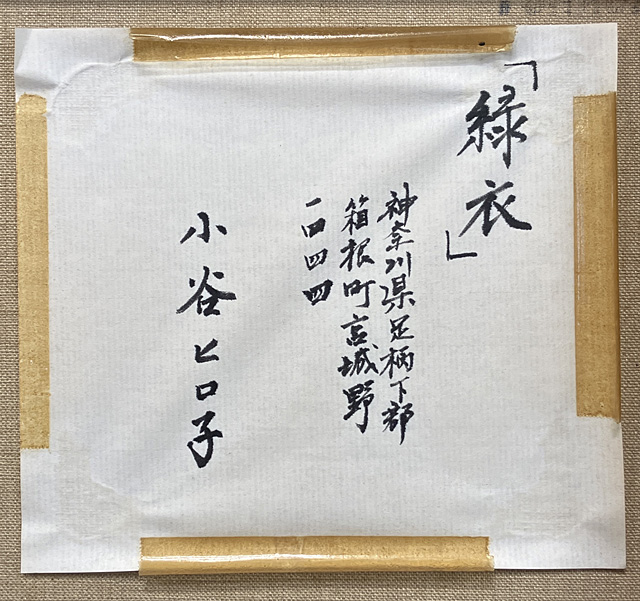 「緑衣」
神奈川県足柄下郡
箱根町宮城野
一四四四
小谷ヒロ子